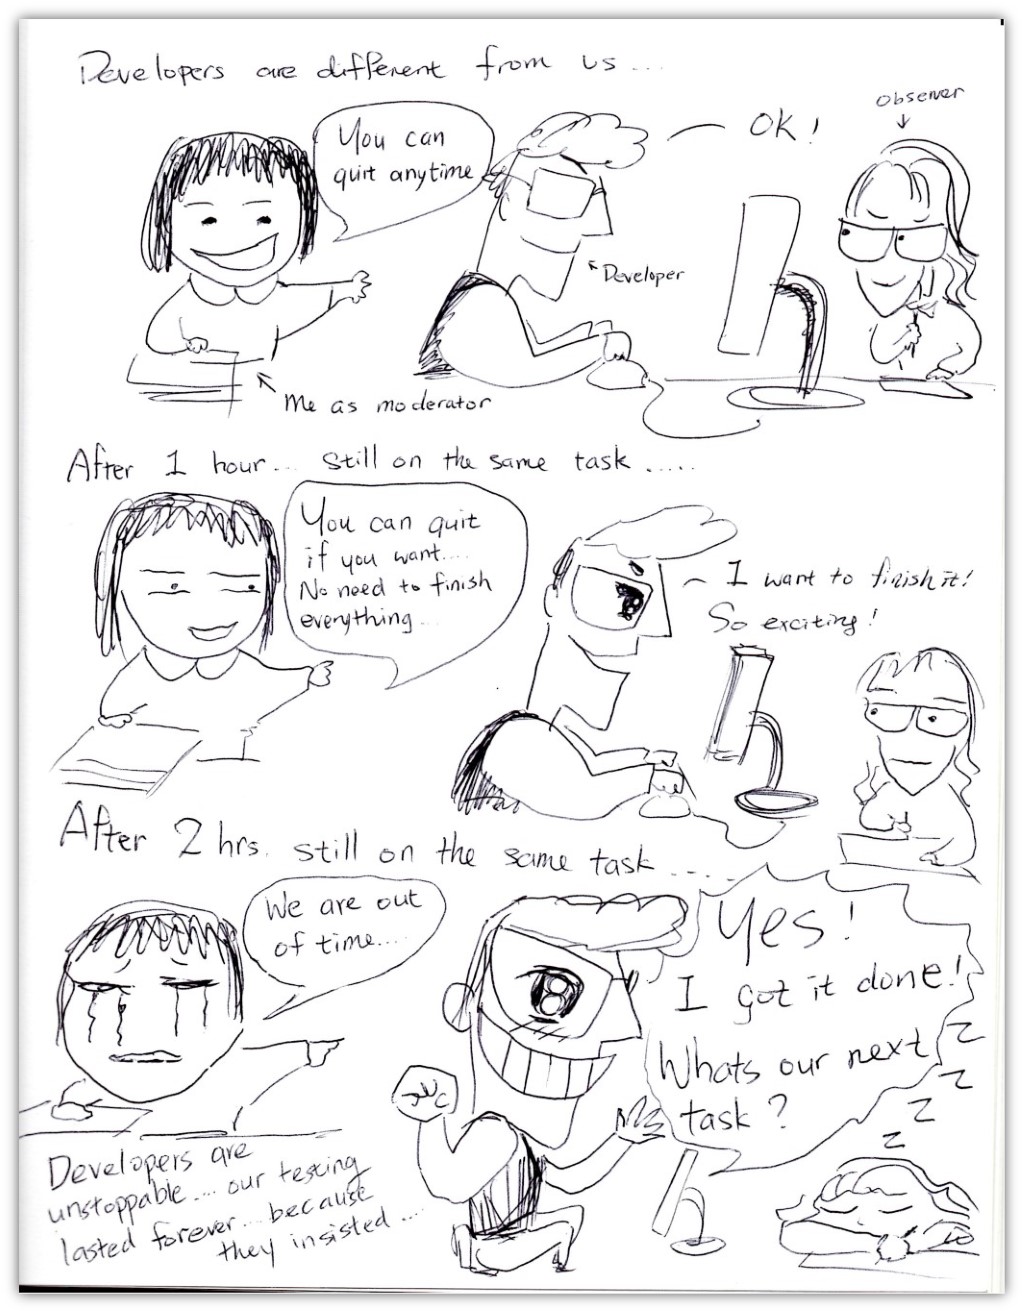 Developers are different from us...
observer
You can
quit anytime
OK!
Developer
Me as moderator
After 1 hour... still on the same task .....
You can quit
if you want....
No need to finish
everything...
I want to finish it!
So exciting!
After 2 hrs. still on the same task .....
We are out
of time....
Yes!
I got it done!
Whats our next
task?
z
z
z
z
Developers are
unstoppable.... our testing
lasted forever... because
they insisted ....